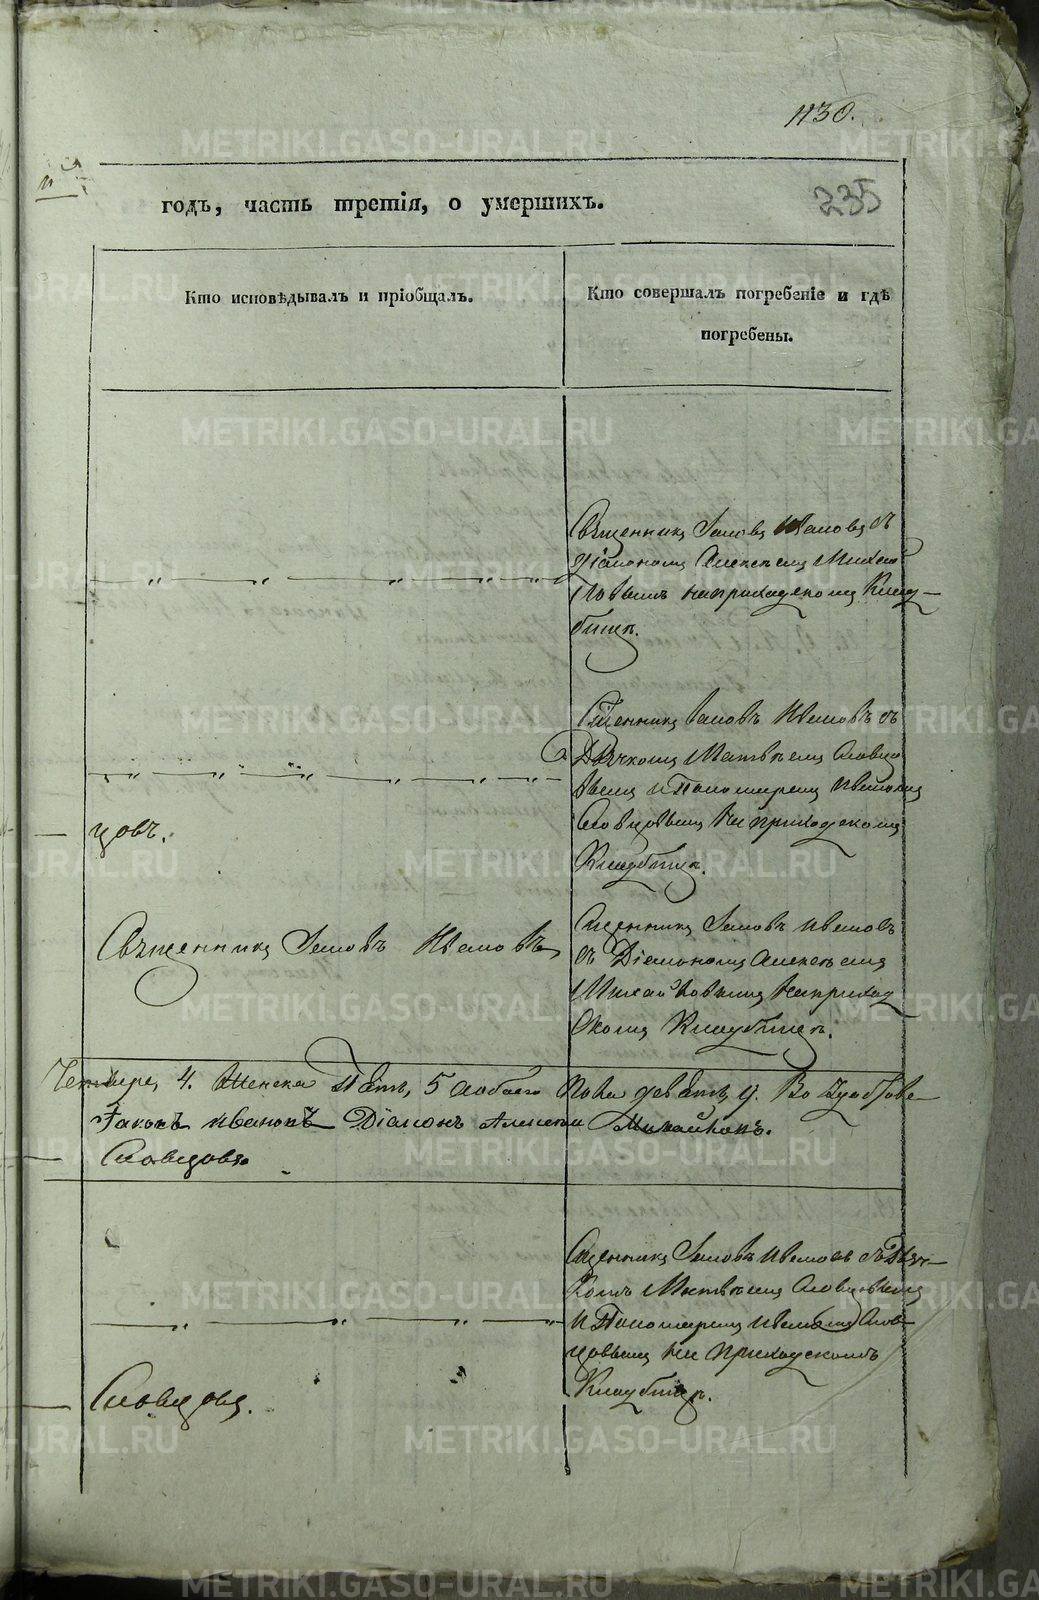 1130.
годъ, часть третія, о умершихъ.
235
Кто исповѣдывалъ и пріобщалъ.
Кто совершалъ погребеніе и гдѣ
погребены.
Священникъ Іаковъ Ивановъ съ
Діакономъ Алексѣемъ Михай
ловымъ на приходскомъ Клад-
бищѣ.
Сщенникъ Іаковъ Ивановъ съ
Дьячкомъ Матвѣемъ Словцо
вымъ и Пономаремъ Иваномъ
Словцовымъ На приходскомъ
Кладбищѣ.
цовъ.
Священникъ Іаковъ Ивановъ
Сщенникъ Іаковъ Ивановъ
съ Діакономъ Алексѣемъ
Михайловымъ На приход
скомъ Кладбищѣ.
Четыре, 4. Женска Пять, 5 обоего Пола девять, 9.
Іаковъ Ивановъ Діаконъ Алексѣй Михайловъ.
Словцовъ
Сщенникъ Іаковъ Ивановъ съ Дьяч-
комъ Матвѣемъ Словцовымъ
и Пономаремъ Иваномъ Слов-
цовымъ На приходскомъ
Кладбищѣ.
Словцовъ.
METRIKI.GASO-URAL.RU